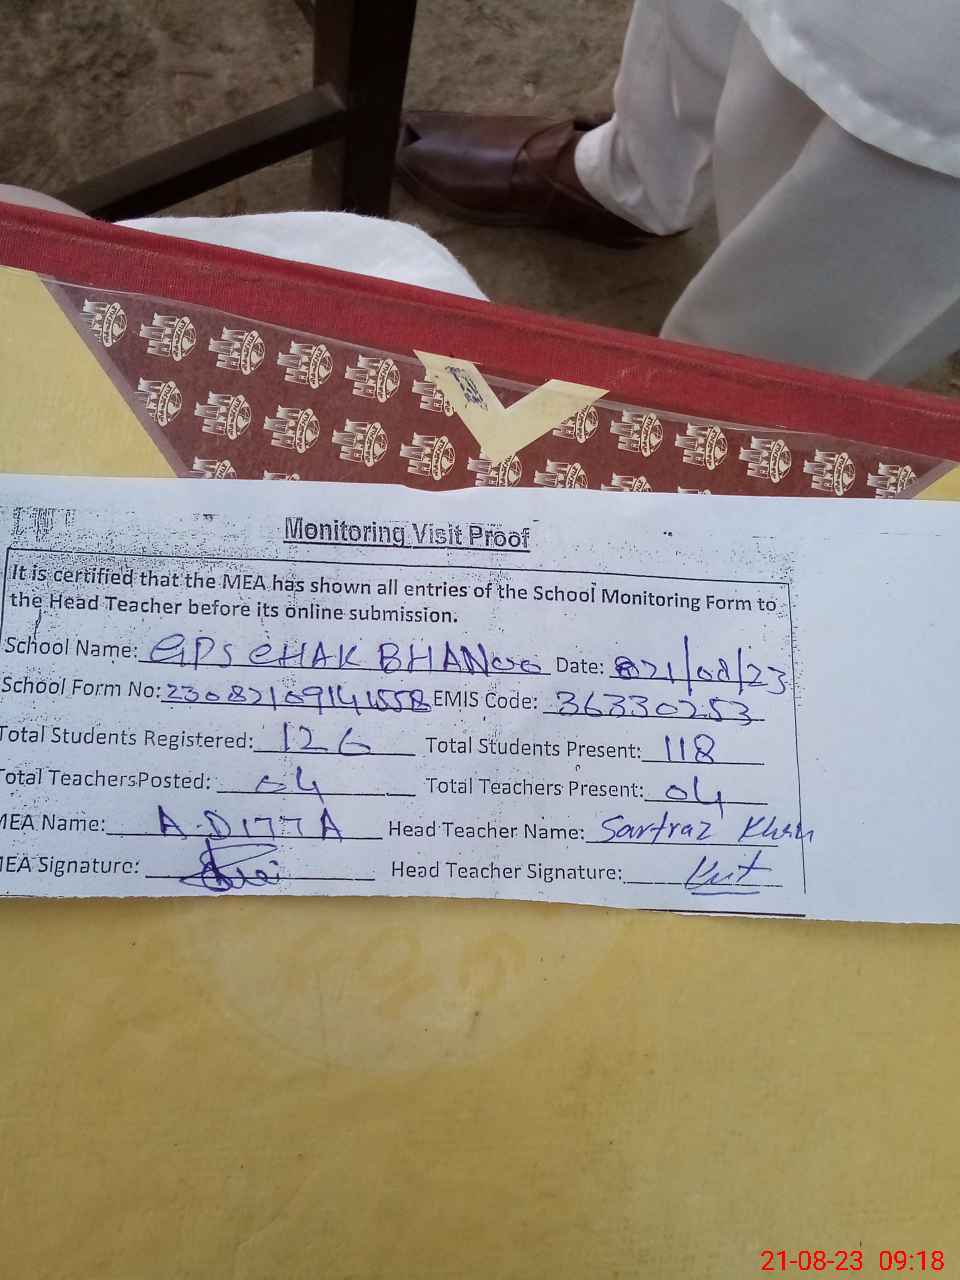 Monitoring Visit Proof
It is certified that the MEA has shown all entries of the School Monitoring Form to
the Head Teacher before its online submission.
School Name: GPS CHAK BHANOO Date: 21/08/23
School Form No: EMIS Code: 36330253
Total Students Registered: 126 Total Students Present: 118
Total TeachersPosted: 04 Total Teachers Present: 04
MEA Name: A.DITTA Head Teacher Name: Sarfraz Khan
MEA Signature: Head Teacher Signature:
21-08-23 09:18